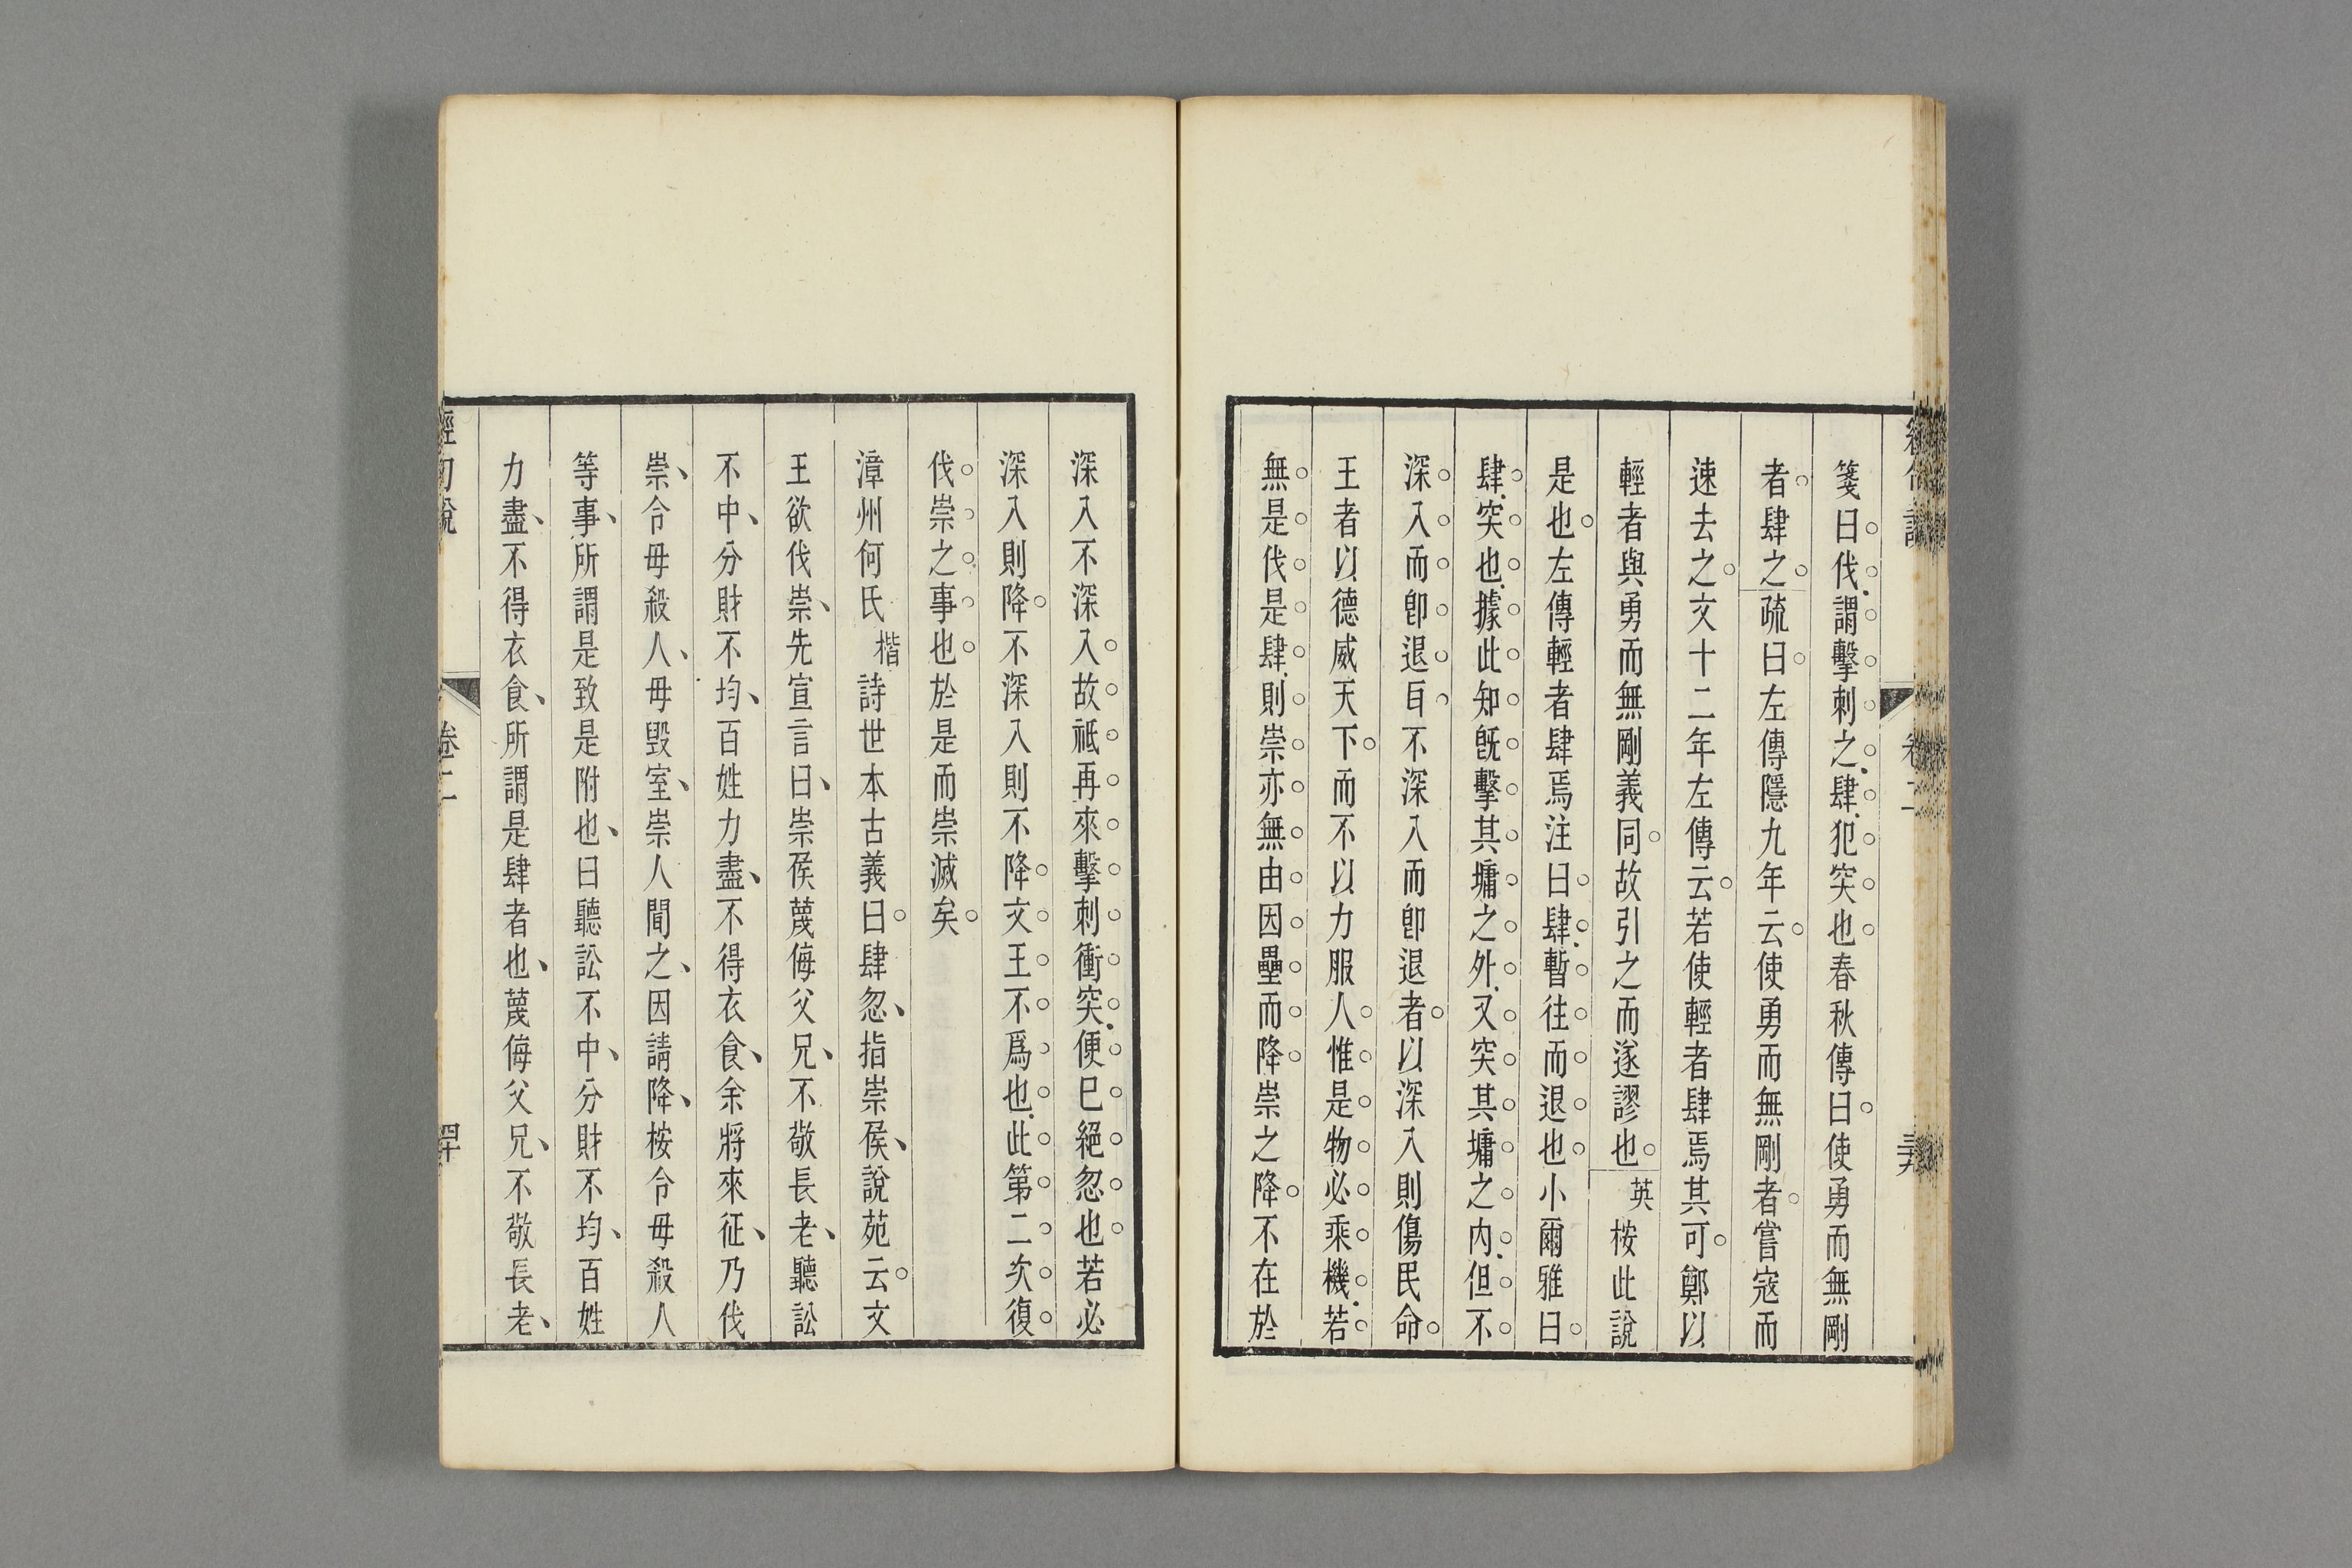 箋曰伐謂擊刺之肆犯突也春秋傳曰使勇而無剛
者肆之疏曰左傳隱九年云使勇而無剛者嘗寇而
速去之文十二年左傳云若使輕者肆焉其可鄭以
輕者與勇而無剛義同故引之而遂謬也英桉此說
是也左傳輕者肆焉注曰肆暫往而退也小爾雅曰
肆突也據此知旣擊其墉之外又突其墉之內但不
深入而卽退耳不深入而卽退者以深入則傷民命
王者以德威天下而不以力服人惟是物必乘機若
無是伐是肆則崇亦無由因壘而降崇之降不在於
深入不深入故祗再來擊刺衝突便已絕忽也若必
深入則降不深入則不降文王不爲也此第二次復
伐崇之事也於是而崇滅矣
漳州何氏楷詩世本古義曰肆忽指崇侯說苑云文
王欲伐崇先宣言曰崇侯蔑侮父兄不敬長老聽訟
不中分財不均百姓力盡不得衣食余將來征乃伐
崇令毋殺人毋毀室崇人聞之因請降桉令毋殺人
等事所謂是致是附也曰聽訟不中分財不均百姓
力盡不得衣食所謂是肆者也蔑侮父兄不敬長老
卷二